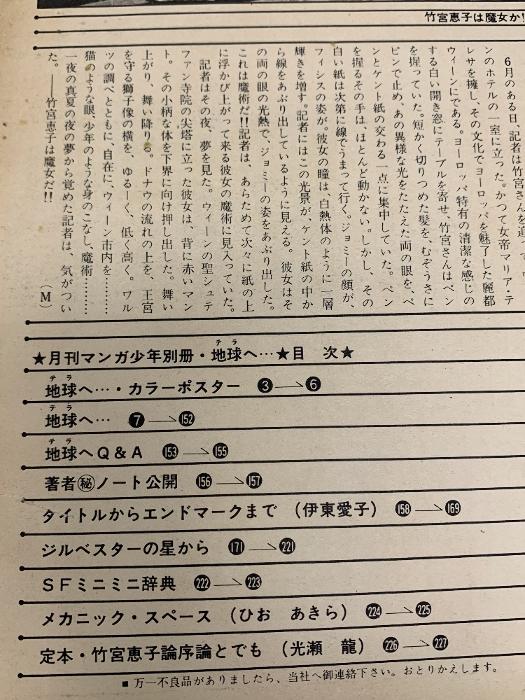 竹宮恵子は魔女か!
6月のある日、記者は竹宮さんを追って
ンのホテルの一室に立った。かつて女帝マリア・テ
レサを擁し、その文化でヨーロッパを魅了した麗都
ウィーンにである。ヨーロッパ特有の清潔な感じの
する白い開き窓にテーブルを寄せ、竹宮さんはペン
を握っていた。短か、切りつめた髪を、むぞうさに
ピンで止め、あの異様な光をたたえた両の眼を、ペ
ンとケント紙の交わる一点に集中していた。ペン
を握るその手は、ほとんど動かない。しかし、その
白い紙は次第に線でうまって行く。ジョミーの顔が、
フィシスの姿が、彼女の瞳は、白熱体のように一層
輝きを増す。記者にはこの光景が、ケント紙の中か
ら線をあぶり出しているように見える。彼女はそ
の両の眼の光熱で、ジョミーの姿をあぶり出した。
これは魔術だ!!記者は、あらためて次々に紙の上
に浮かび上がって来る彼女の魔術に見入っていた。
記者はその夜、夢を見た。ウィーンの聖シュテ
ファン寺院の尖塔に立った彼女は、背に赤いマン
ト。その小柄な体を下界に向け押し出した。舞い
上がり、舞い降りる。ドナウの流れの上を、王宮
を守る獅子像の横を、ゆるーく、低く高く。ワル
ツの調べとともに、自在に、ウィーン市内を……
猫のような眼、少年のような身のこなし、魔術……
一夜の真夏の夜の夢から覚めた記者は、気がつい
た。――竹宮恵子は魔女だ!!
(M)
★月刊マンガ少年別冊・地球へ…★目 次★
地球へ…・カラーポスター ❸―→❻
地球へ… ❼―→152
地球へQ&A 153―→155
著者㊙ノート公開 156―→157
タイトルからエンドマークまで (伊東愛子) 158―→169
ジルベスターの星から 171―→221
SFミニミニ辞典 222―→223
メカニック・スペース (ひお あきら) 224―→225
定本・竹宮恵子論序論とでも (光瀬 龍) 226―→227
■万一不良品がありましたら、当社へ御連絡下さい。おとりかえします。